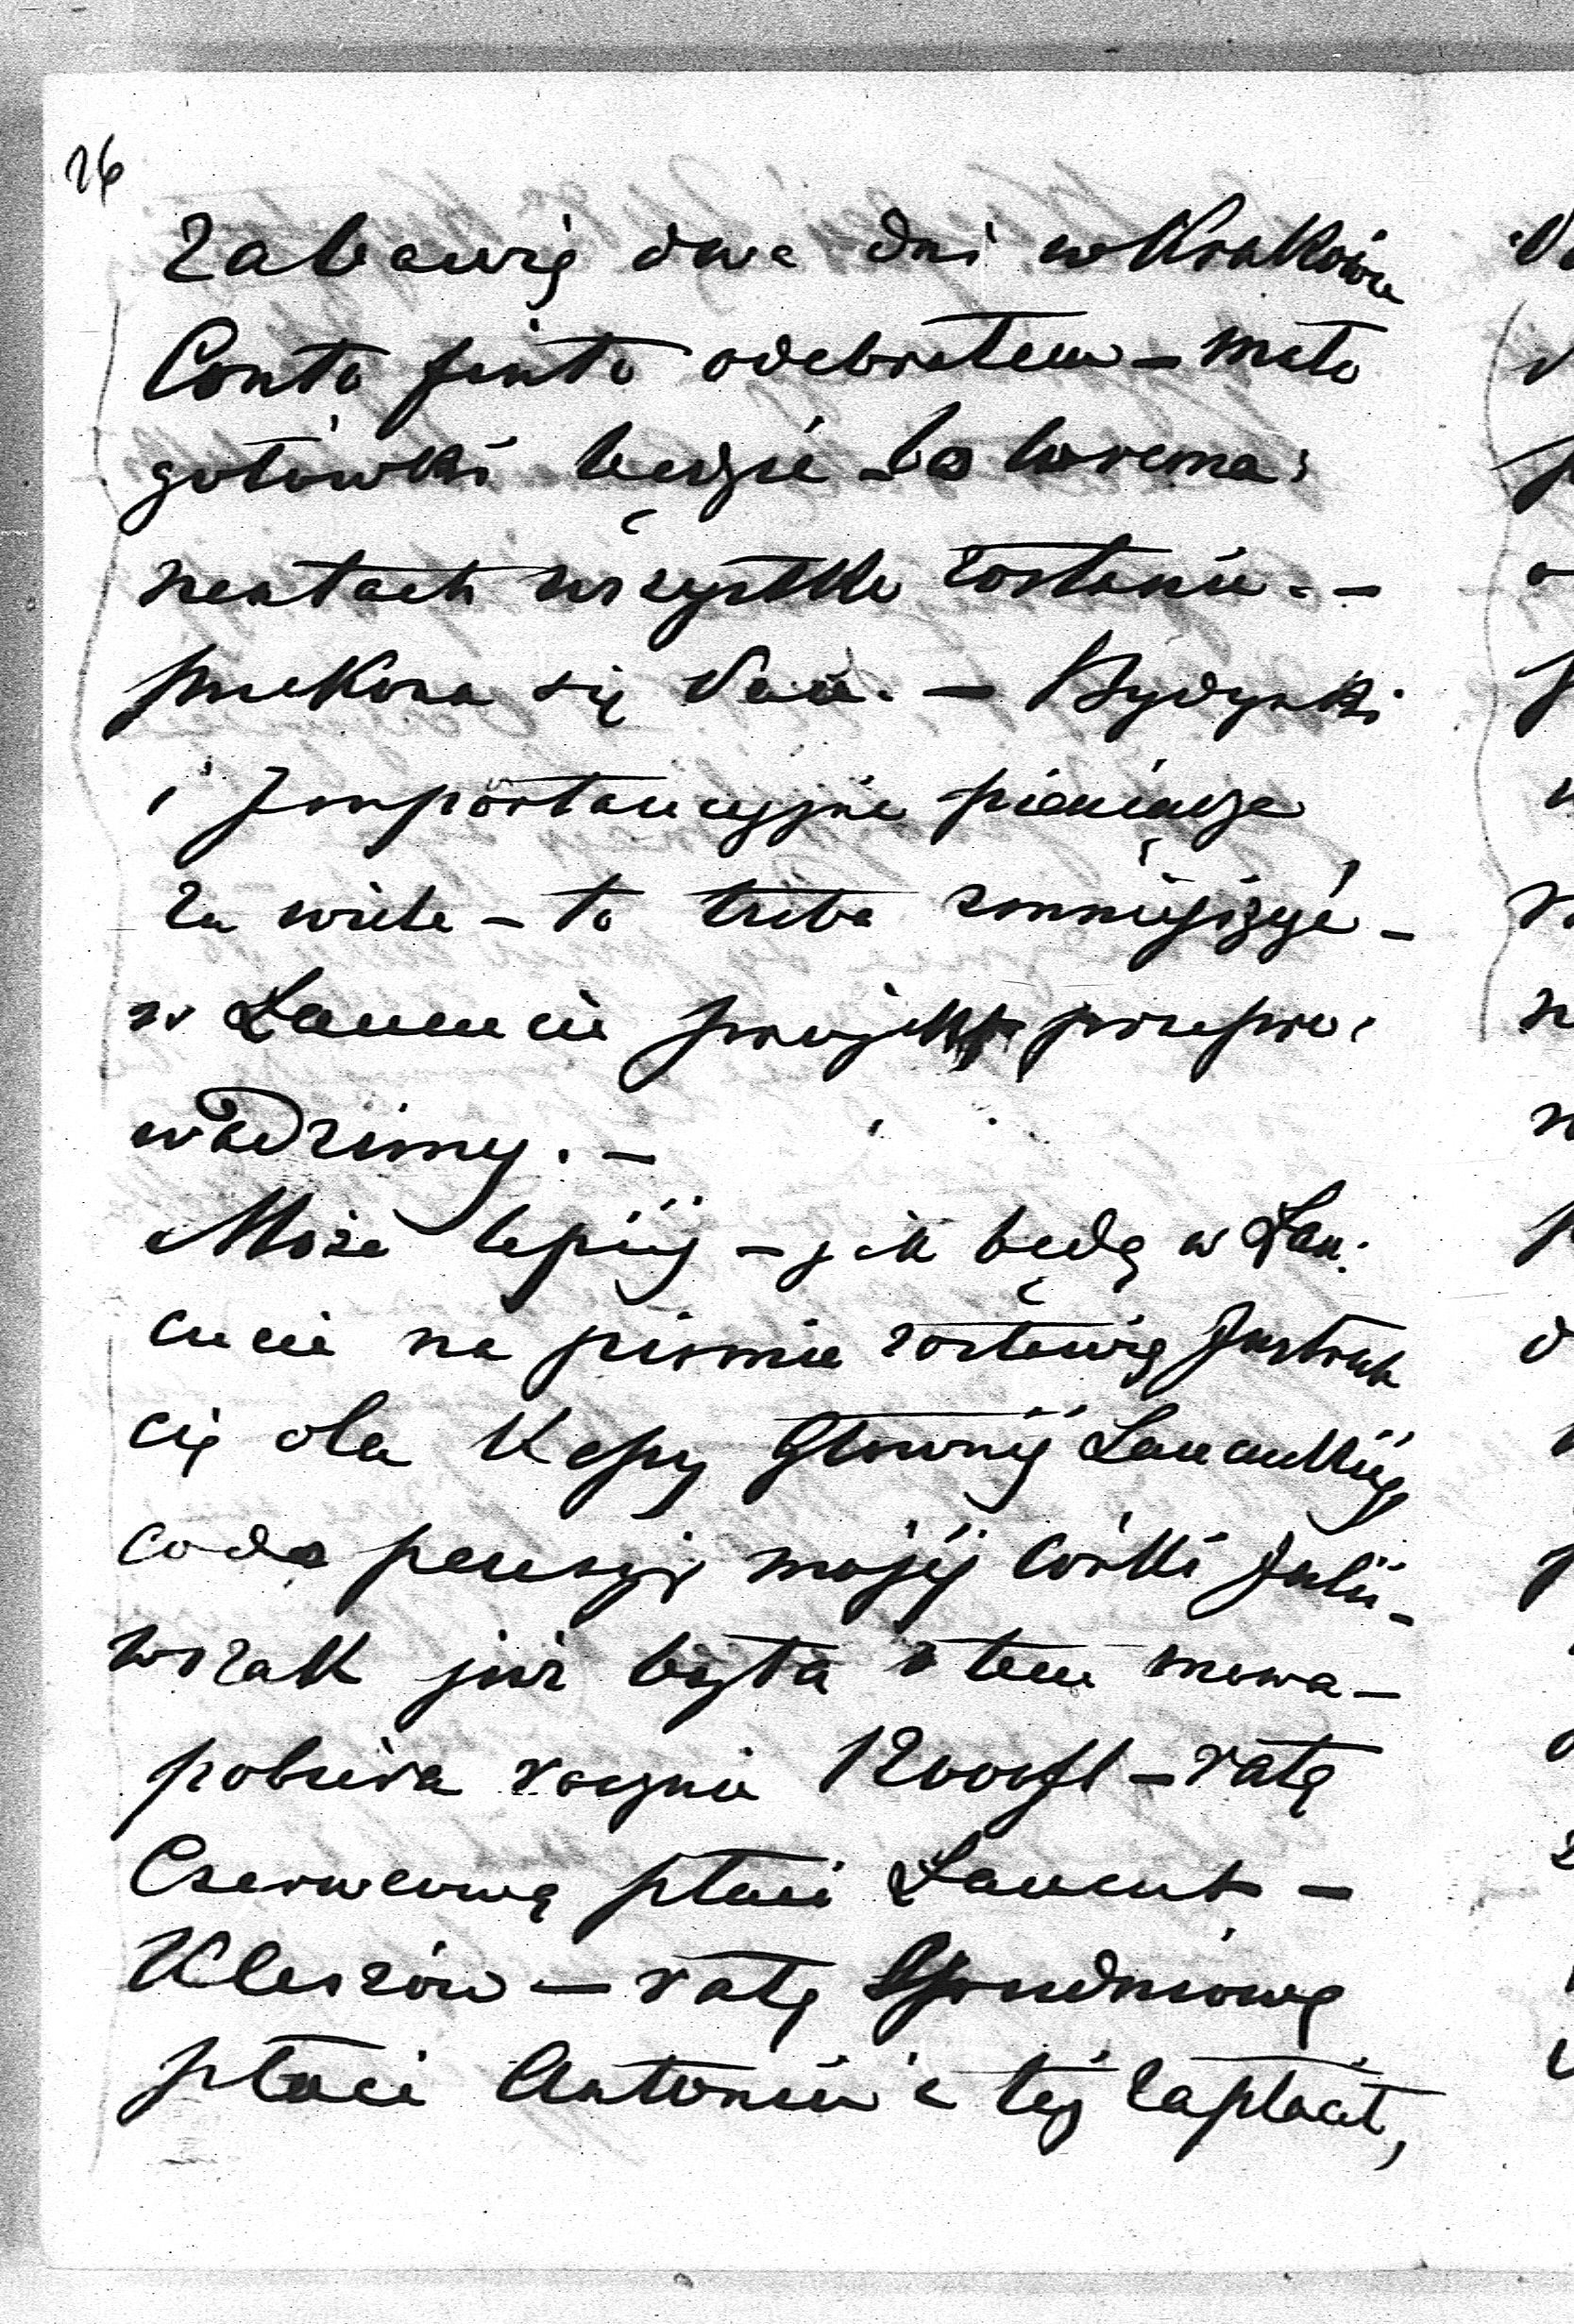 26
zabawię dwa dni w Krakowie
Conto finto odebrałem – mało
gotówki będzie – bo w rema:
nentach wszystko zostanie. –
przekona się Pan. – Budynki
i Importancyjne pieniądze
za wiele – to trzeba zmniejszyć –
w Łancucie projekt przepro:
wadzimy. –
Może lepiéj – jak będę w Łan:
cucie na pismie zostawię Instruk
cię dla Kassy Głownéj Łancuckiéj,
co do pensyi mojéj córki Julii –
wszak już była o tem mowa –
pobiera rocznie 12000 fl – ratę
Czerwcową płaci Łancut –
Kleszów – ratę Grudniową
płaci Antonin i téj zapłacił,